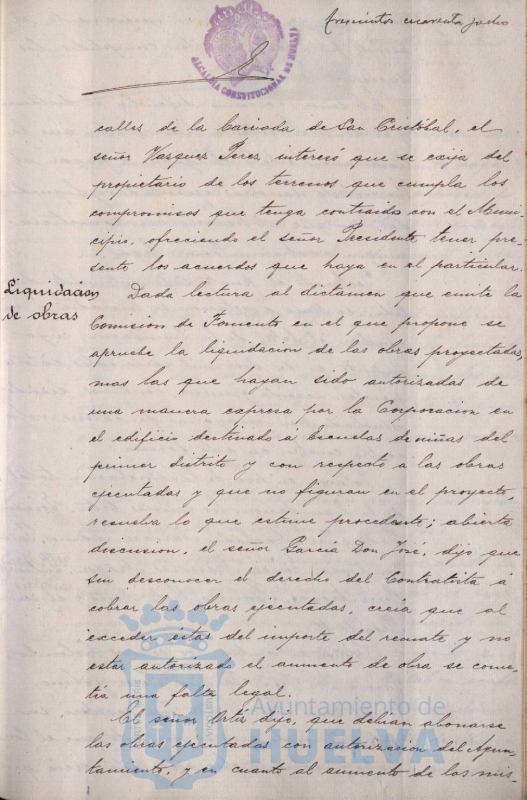 trescientos cuarenta y ocho
ALCALDIA CONSTITUCIONAL DE HUELVA
calles de la Barriada de San Cristóbal, el
señor Vasquez Perez, interesó que se exija del
propietario de los terrenos que cumpla los
compromisos que tenga contraidos con el Muni-
cipio, ofreciendo el señor Presidente tener pre-
sente los acuerdos que haya en el particular.
Liquidacion
de obras
Dada lectura al dictámen que emite la
Comision de Fomento en el que propone se
apruebe la liquidacion de las obras proyectadas,
mas las que hayan sido autorizadas de
una manera expresa por la Corporacion en
el edificio destinado á Escuelas de niñas del
primer distrito y con respecto á las obras
ejecutadas y que no figuran en el proyecto,
resuelva lo que estime procedente; abierta
discusion, el señor Garcia Don José, dijo que
sin desconocer el derecho del Contratista á
cobrar las obras ejecutadas, creia que al
exceder éstas del importe del remate y no
estar autorizado el aumento de obra se come-
tia una falta legal.
El señor dijo, que debian abonarse
las obras ejecutadas con autorizacion del Ayun-
tamiento, y en cuanto al aumento de las mis-
Ayuntamiento de
HUELVA